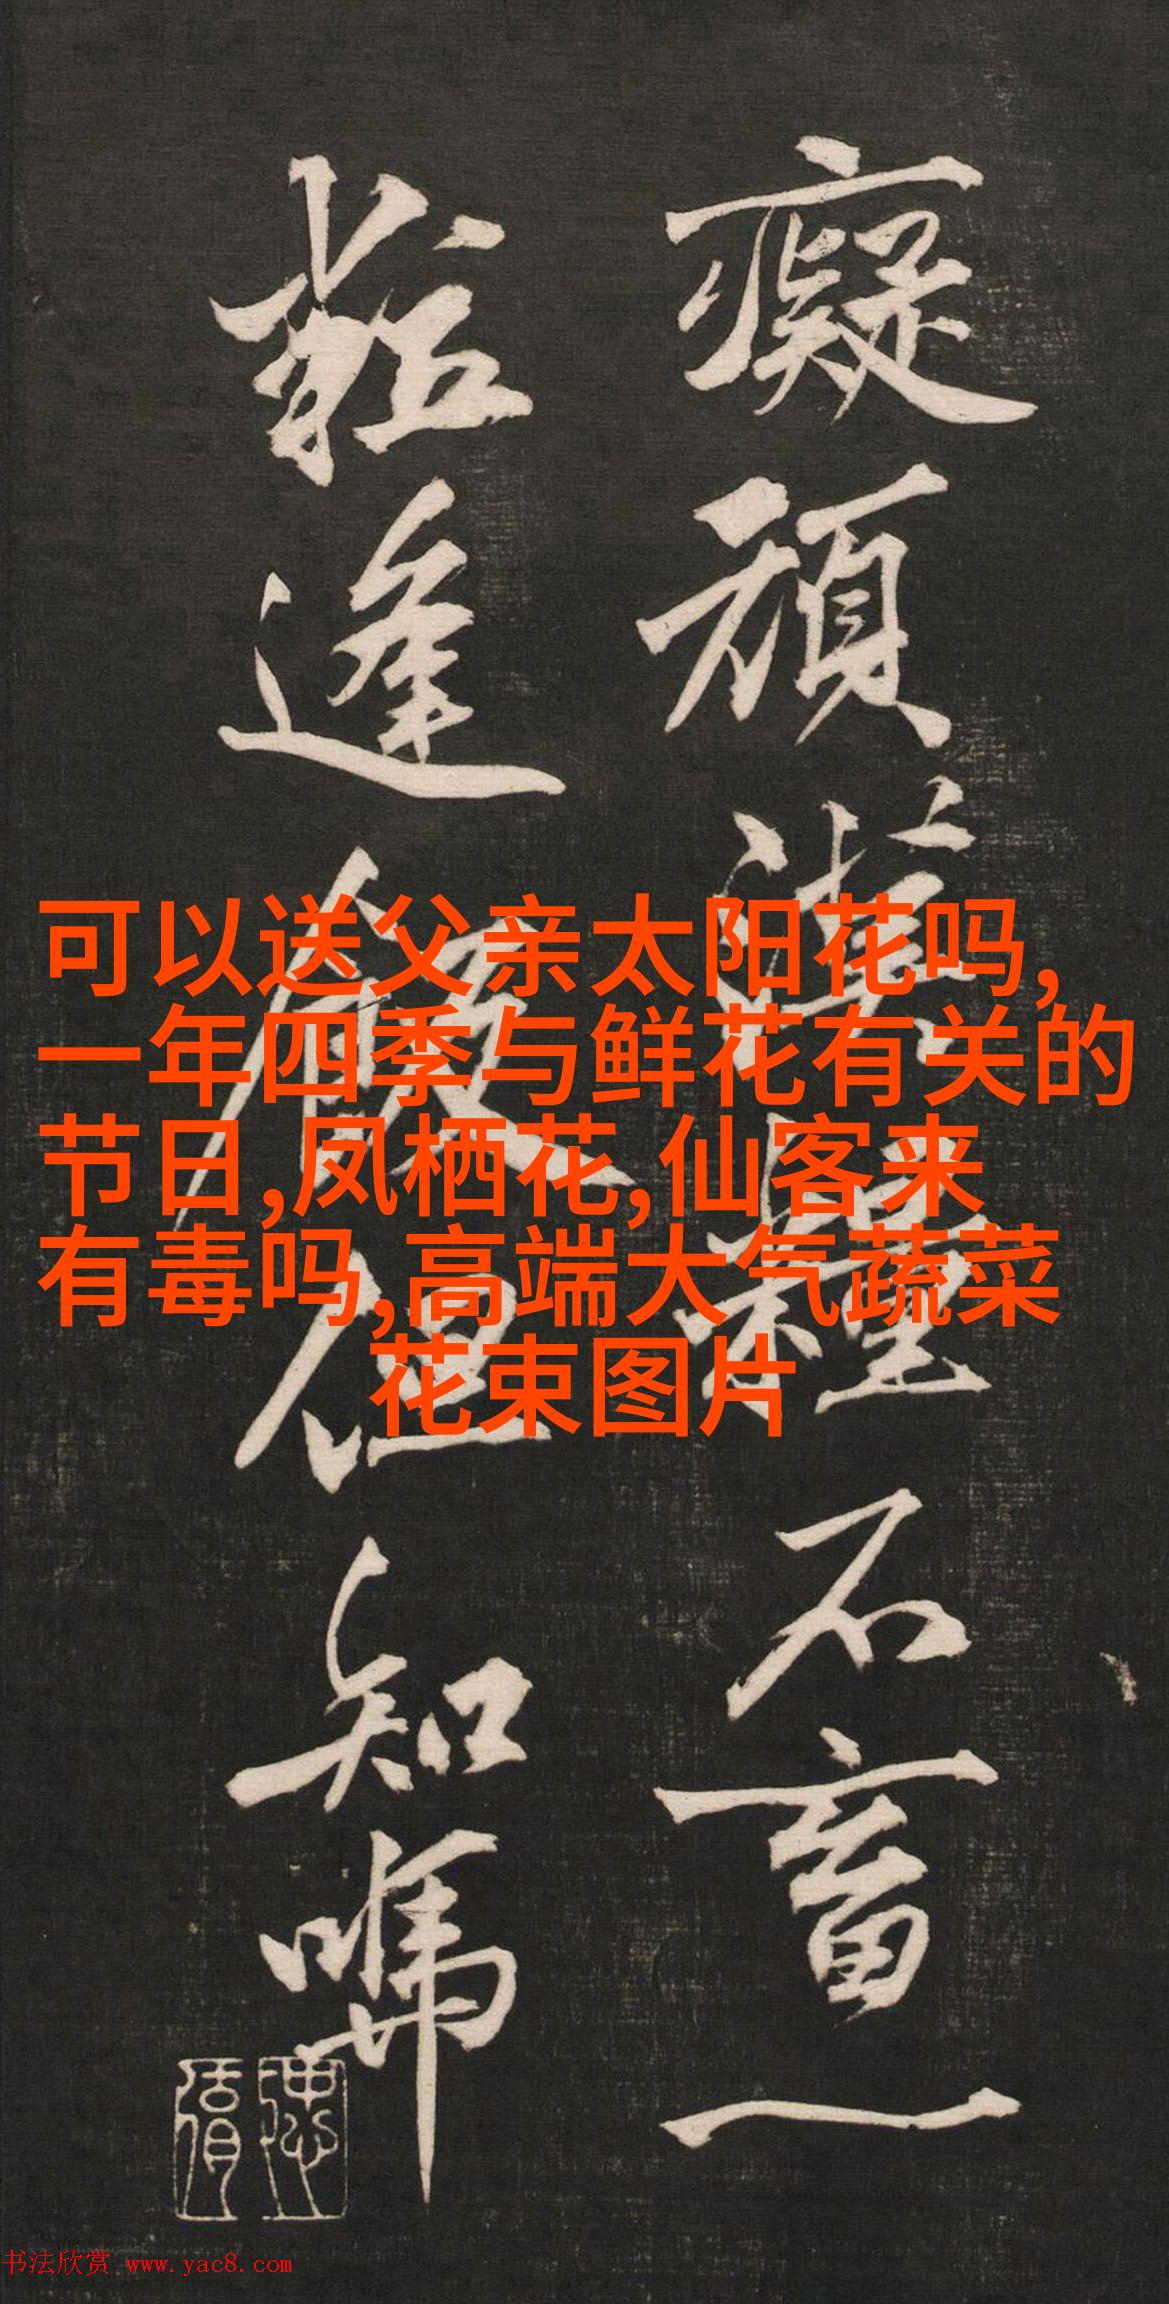 可以送父亲太阳花吗,
一年四季与鲜花有关的
节日,凤栖花,仙客来
有毒吗,高端大气蔬菜
花束图片
癡頑漢種石畜一
粒逢飯但知
书法欣赏 www.yac8.com